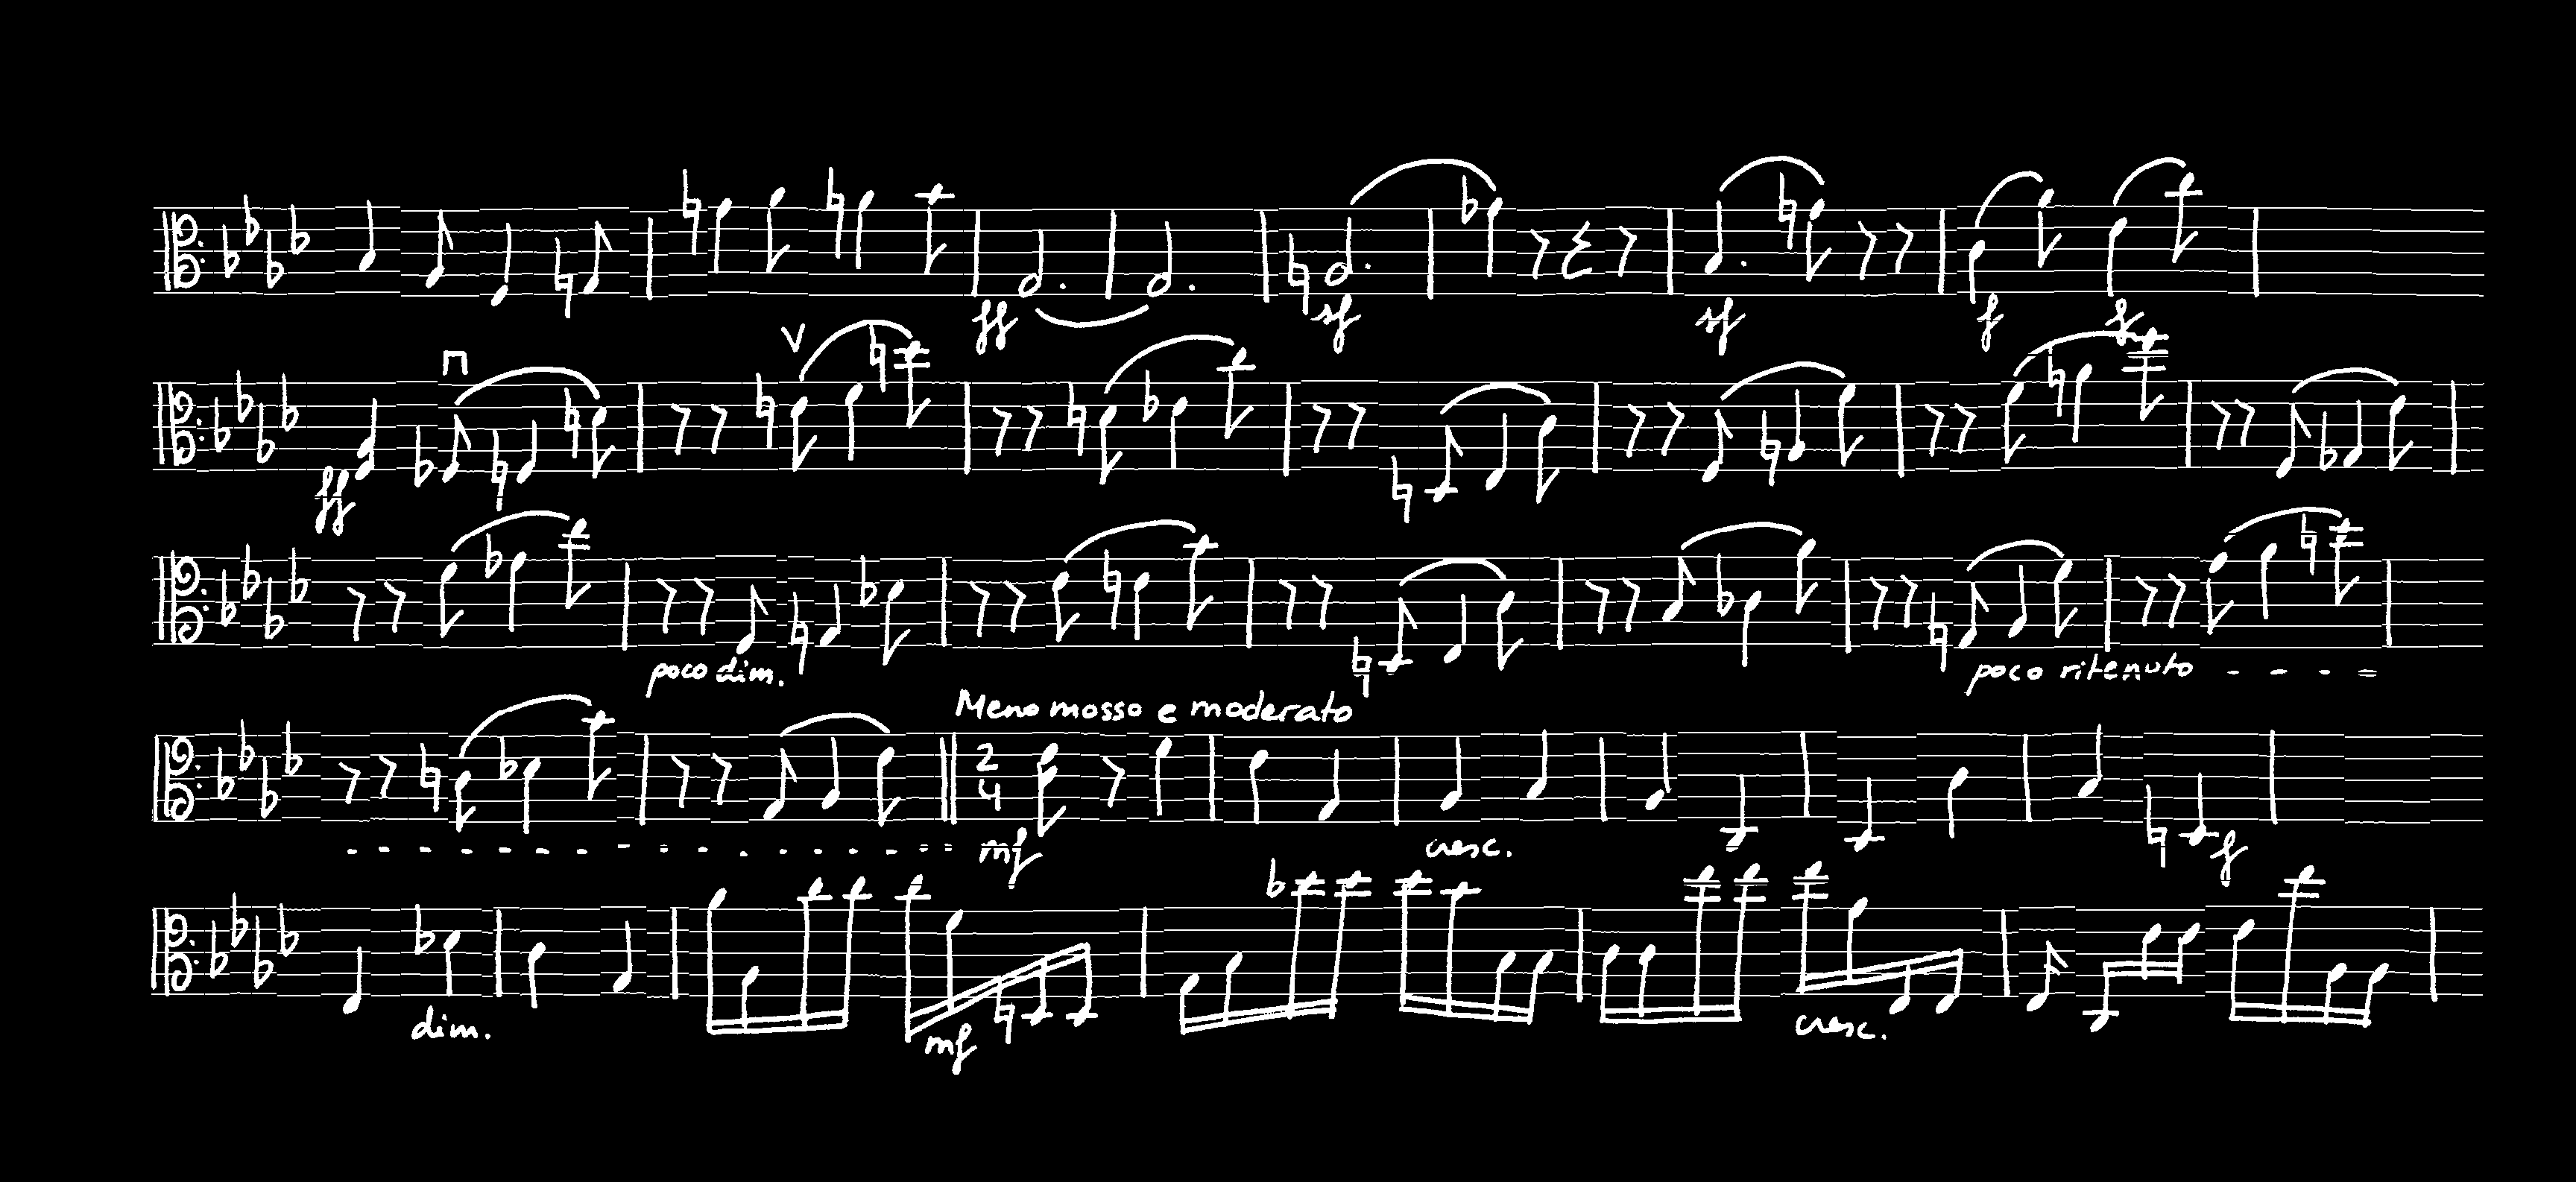 ff sf sf f f
V
ff
poco dim. poco ritenuto - - - =
Meno mosso e moderato
2 4
mf cresc. f
dim. mf cresc.